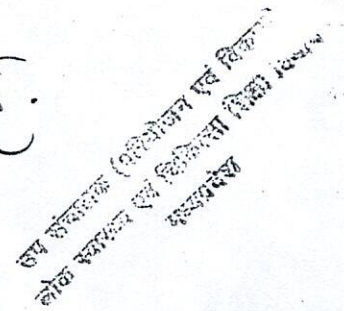 उप संचालक (परियोजना एवं विकास
लोक स्वास्थ्य एवं चिकित्सा शिक्षा विभाग
मध्यप्रदेश